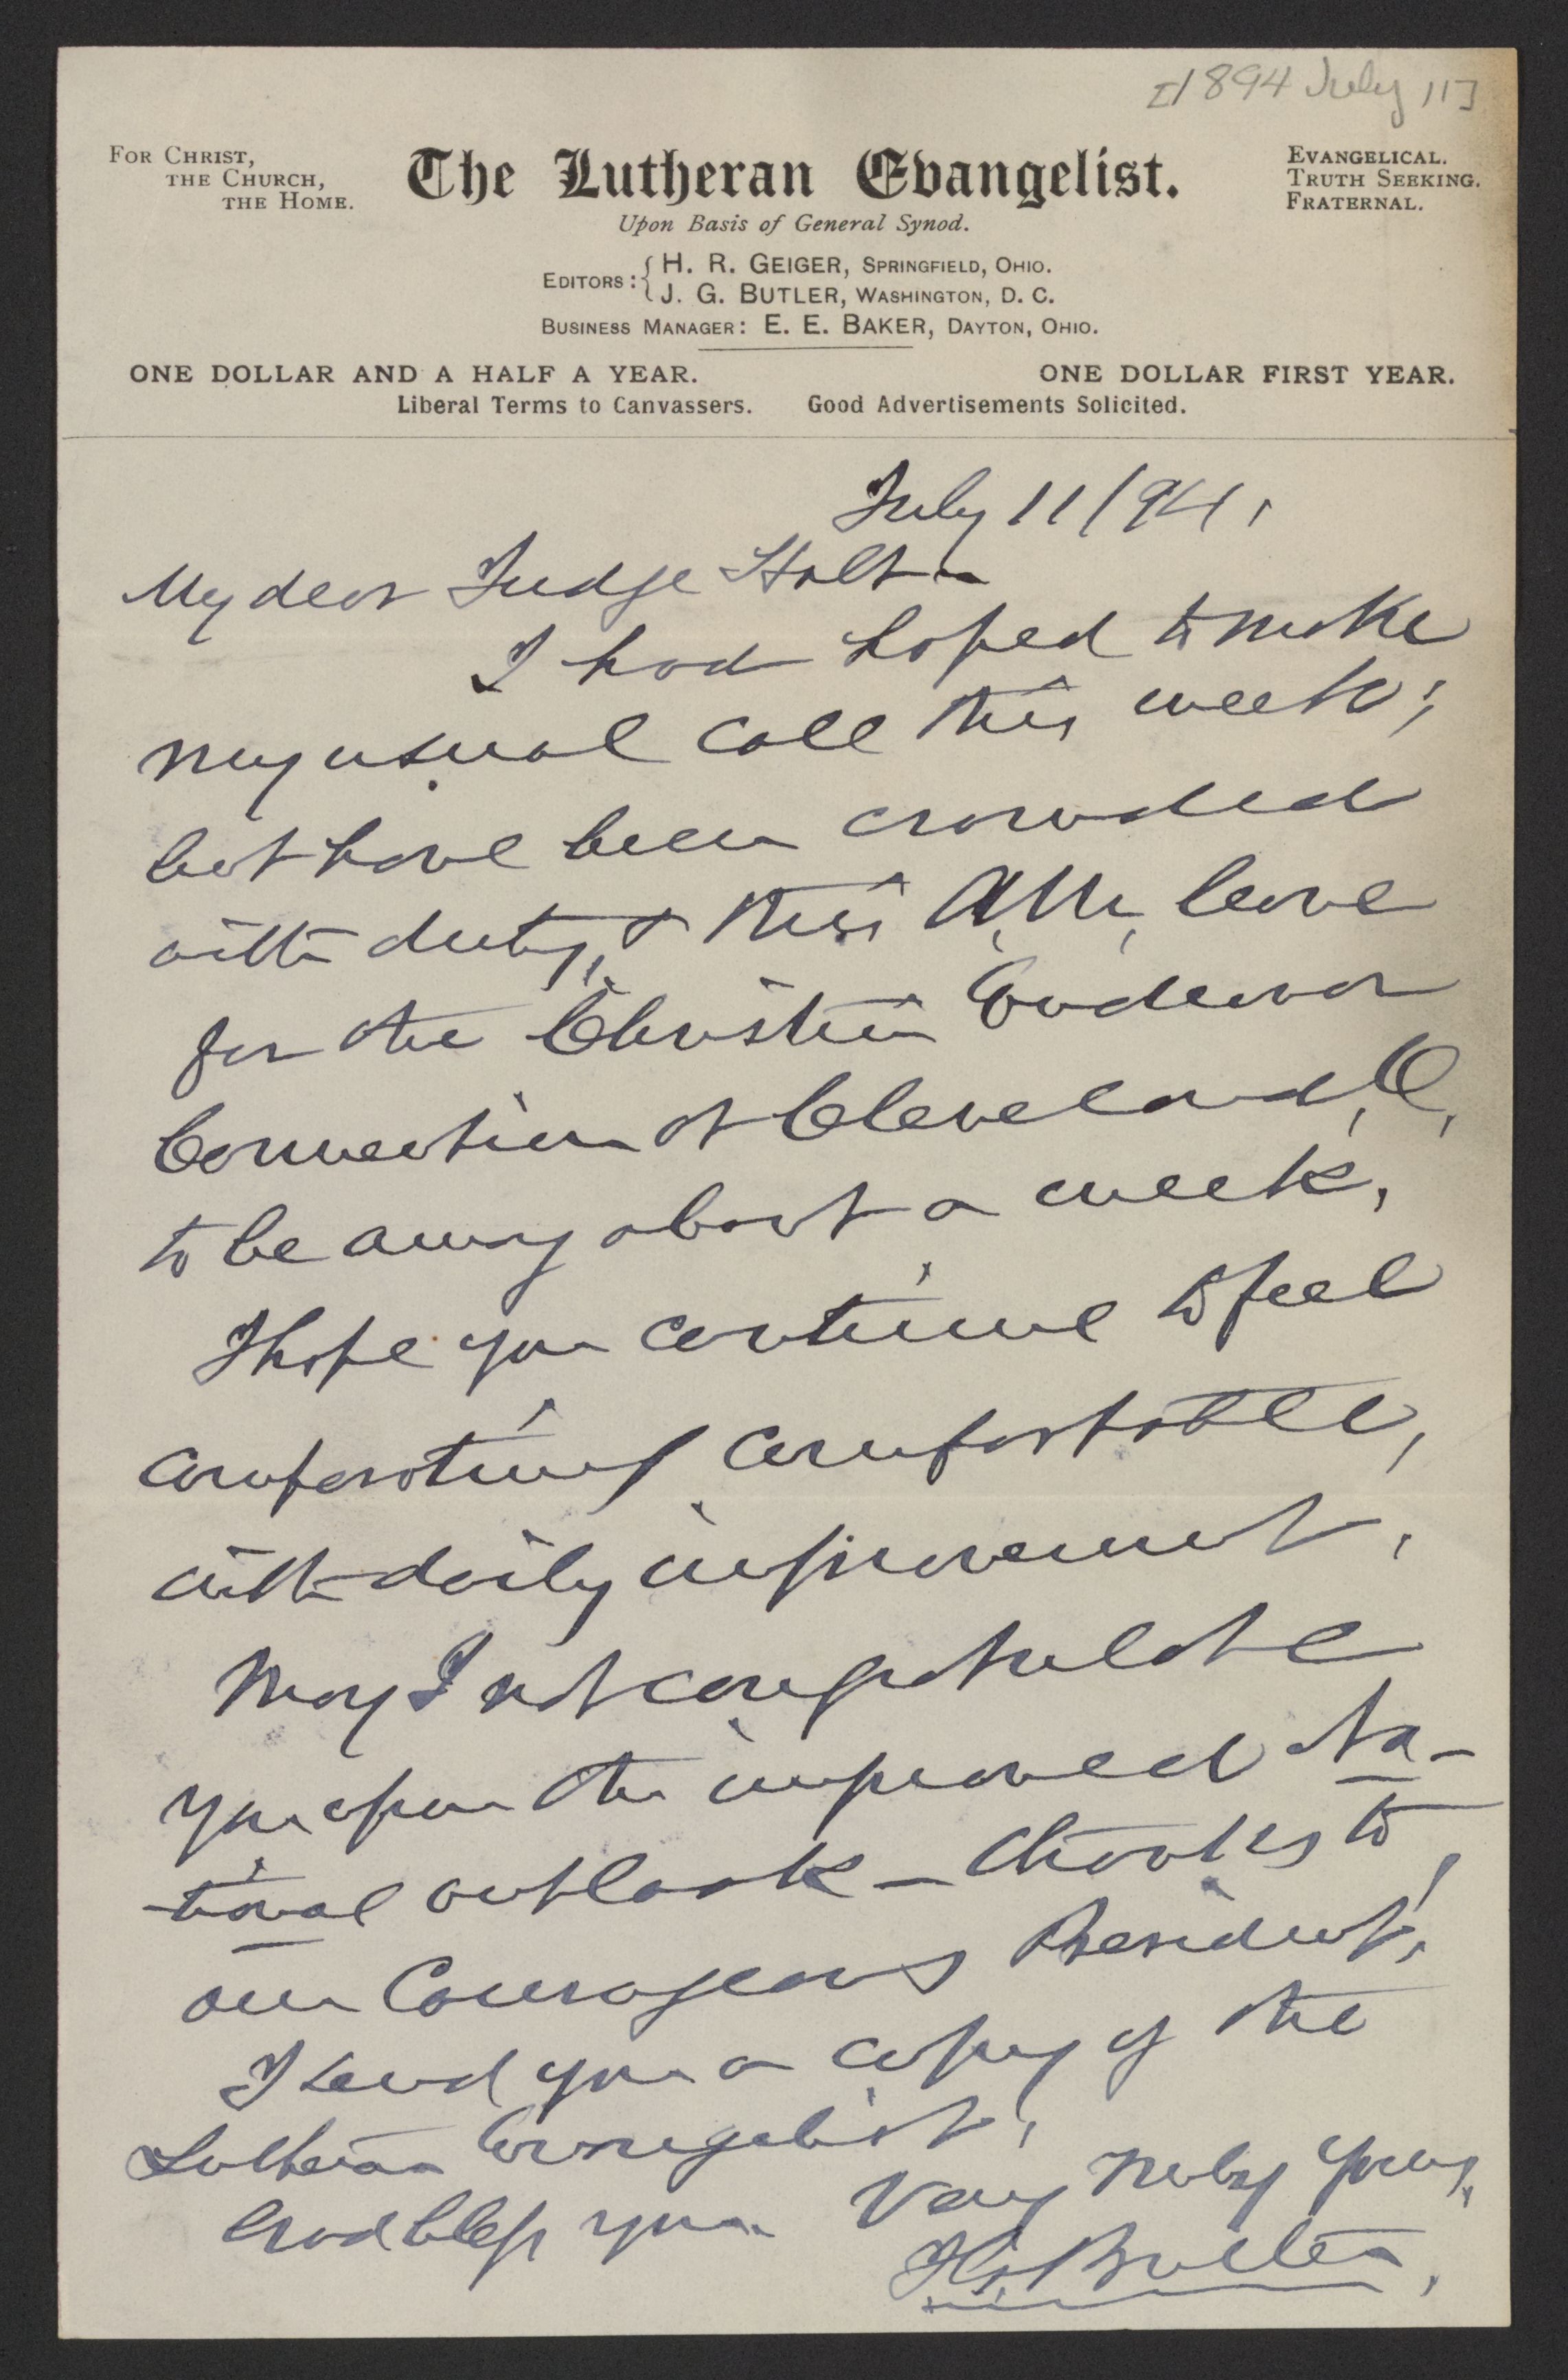 [1894 July 11]
For Christ,
the Church,
the Home.
The Lutheran Evangelist.
Upon Basis of General Synod.
Evangelical.
Truth Seeking.
Fraternal.
Editors: { H. R. Geiger, Springfield, Ohio.
J. G. Butler, Washington, D. C.
Business Manager: E. E. Baker, Dayton, Ohio.
ONE DOLLAR AND A HALF A YEAR. ONE DOLLAR FIRST YEAR.
Liberal Terms to Canvassers. Good Advertisements Solicited.
July 11/94.
My dear Judge Holt -
I had hoped to make
my usual call this week;
but have been crowded
with duty, & this A.M. leave
for the Christian Endeavor
Convention at Cleveland, O.
to be away about a week.
I hope you continue to feel
comfortable,
with daily improvement.
May I not congratulate
you upon the improved Na-
tional outlook - thanks to
our Courageous President!
I send you a copy of the
Lutheran Evangelist.
God bless you. Very truly yours,
J.G. Butler.